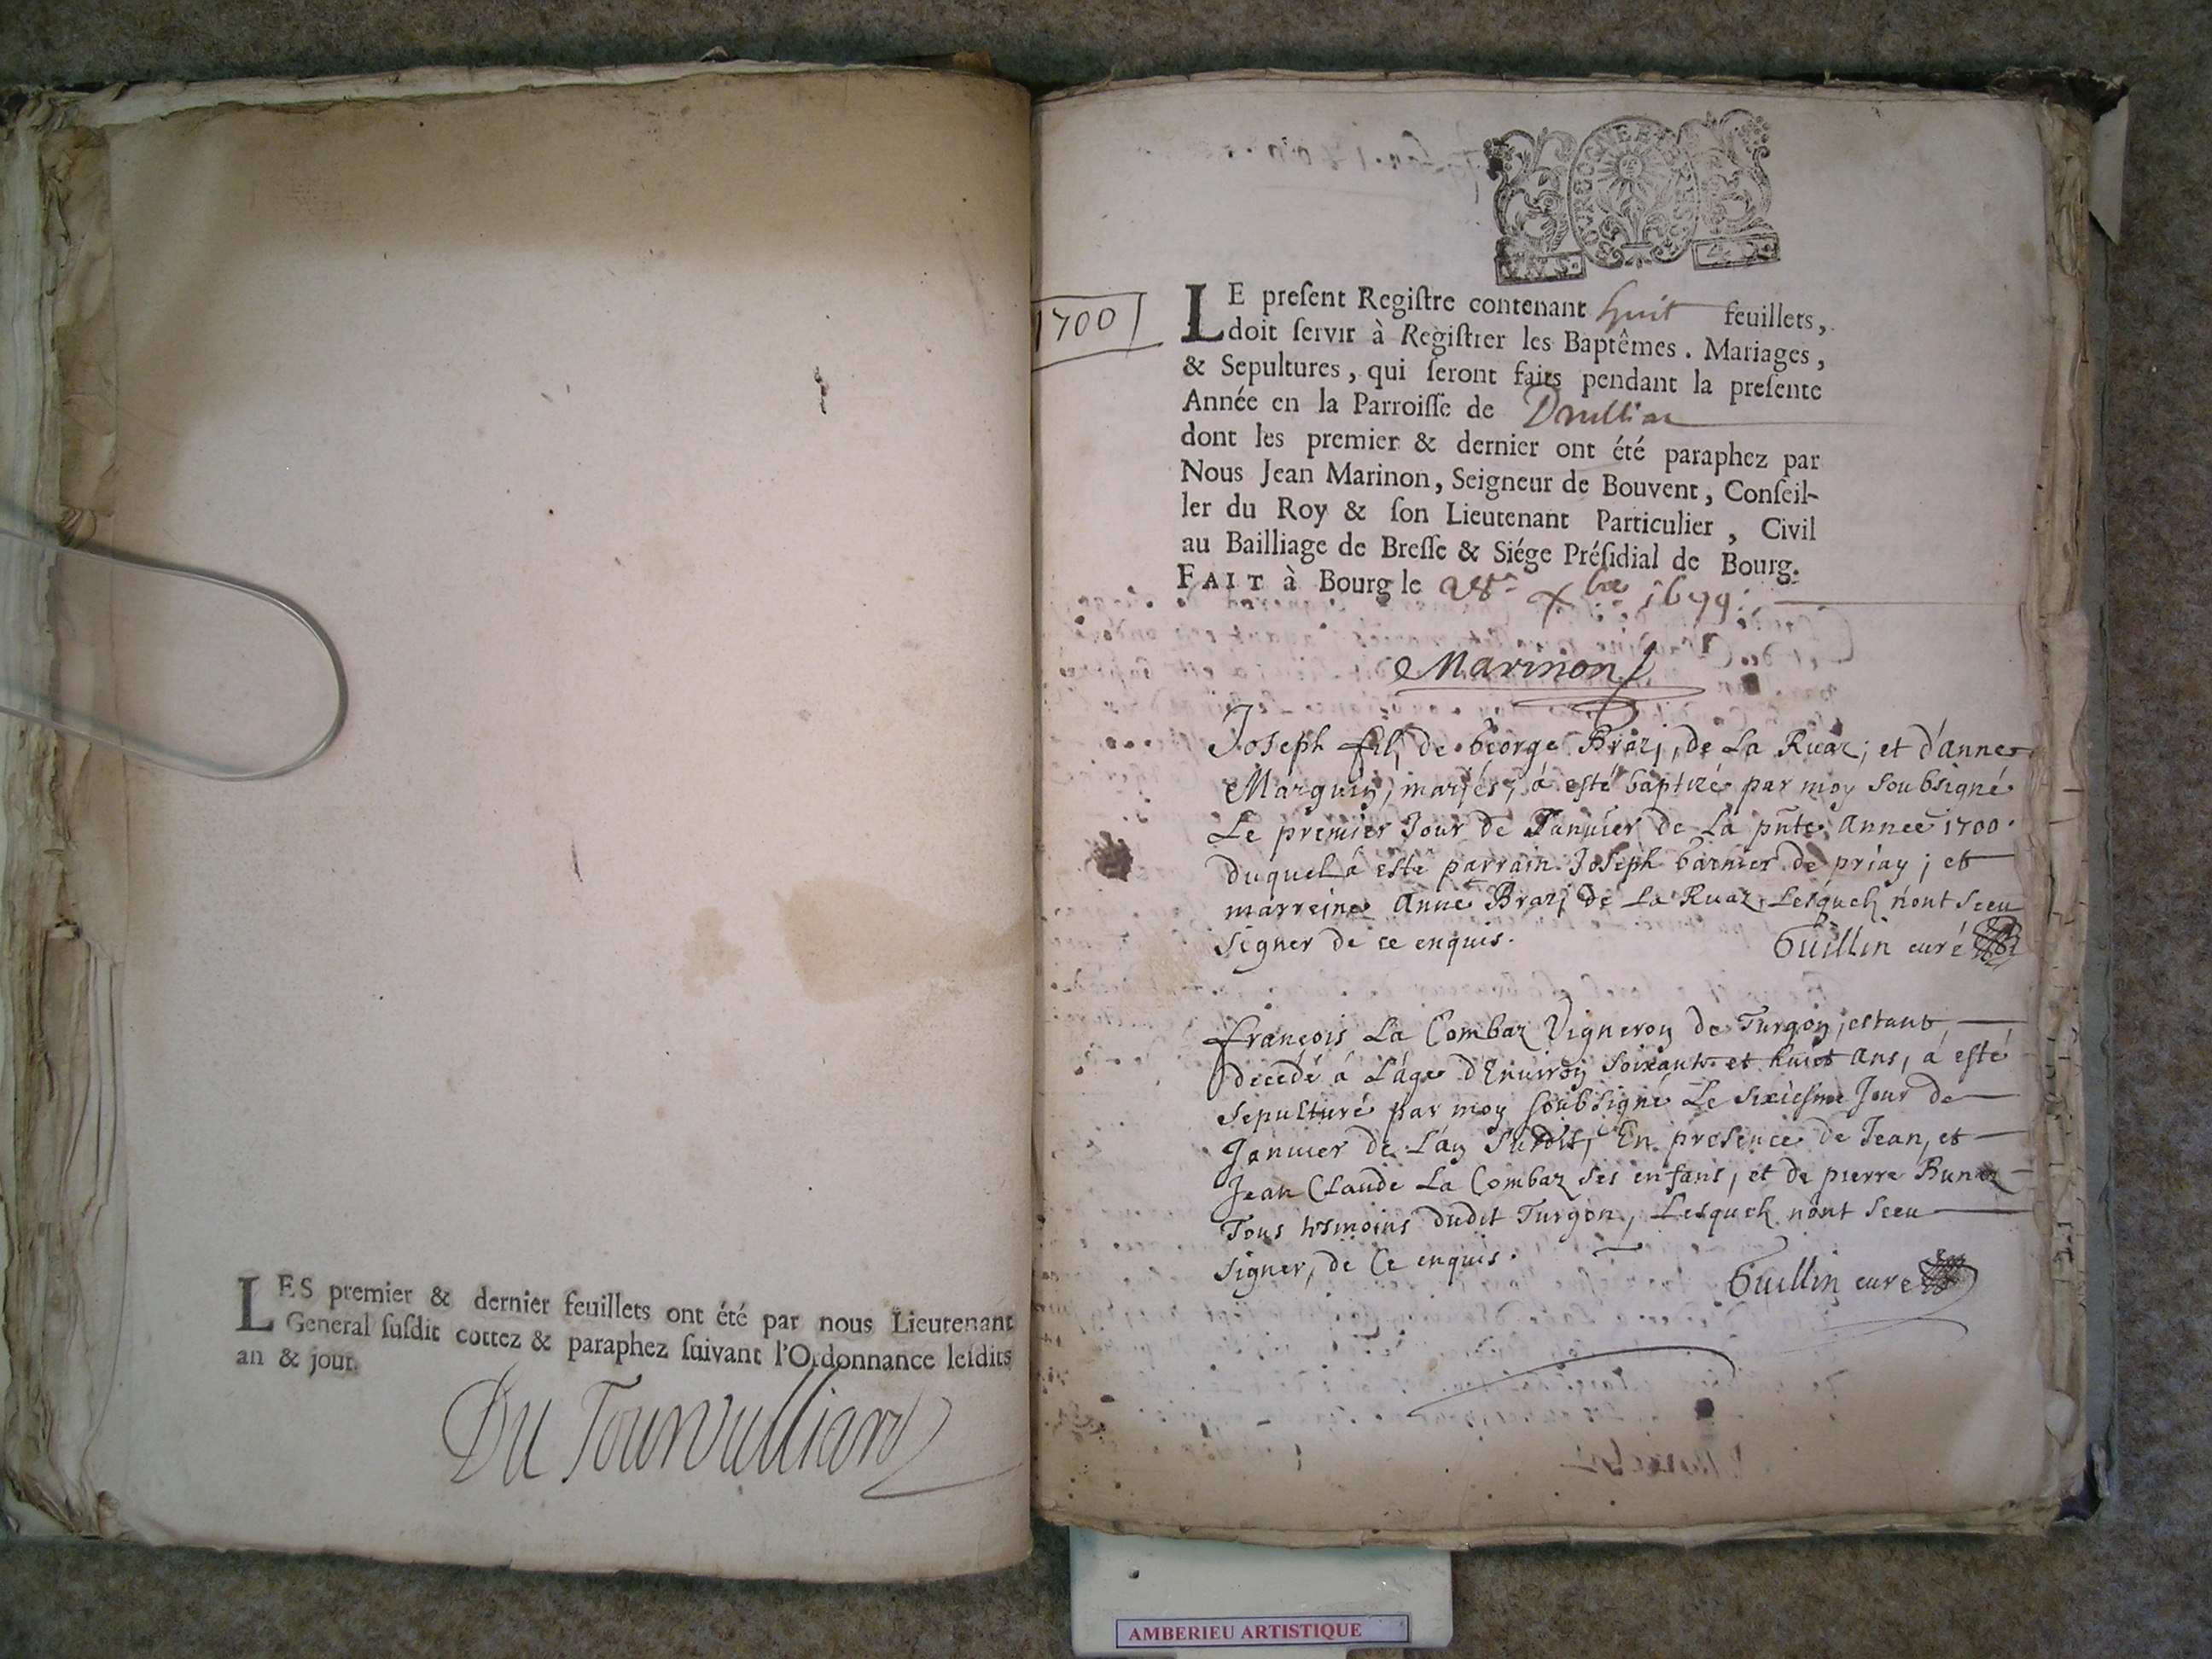 LES premier & dernier feuillets ont été par nous Lieutenant
General susdit cottez & paraphez suivant l'Ordonnance lesdits
an & jour.
Du Tour Vulliard
1700
LE present Registre contenant huit feuillets,
doit servir à Registrer les Baptêmes. Mariages,
& Sepultures, qui seront faits pendant la presente
Année en la Parroisse de Druillia
dont les premier & dernier ont été paraphez par
Nous Jean Marinon, Seigneur de Bouvent, Conseil-
ler du Roy & son Lieutenant Particulier, Civil
au Bailliage de Bresse & Siége Présidial de Bourg.
FAIT à Bourg le xbre 1699
Marinon
Joseph fils de George Brazj, de La Ruaz; et d'anne
Marguin, mariés, a esté baptizé par moy soubsigné
Le premier Jour de Januier de La pnte. Annee 1700.
duquel a esté parrain Joseph Garnier de priay; et
marreine Anne Brazj de La Ruaz Lesquels n'ont sceu
signer de ce enquis. Guillin curé
françois La Combaz Vigneron de Turgon, estant
decedé a L'age d'Enuiron soixante et huict Ans, a esté
sepulturé par moy soubsigné Le sixiesme Jour de
Januier de L'an susdit, En presence de Jean, et
Jean Claude La Combaz ses enfans, et de pierre Bunoz
Tous tesmoins dudit Turgon, Lesquels n'ont sceu
signer, de Ce enquis.
Guillin curé
AMBERIEU ARTISTIQUE